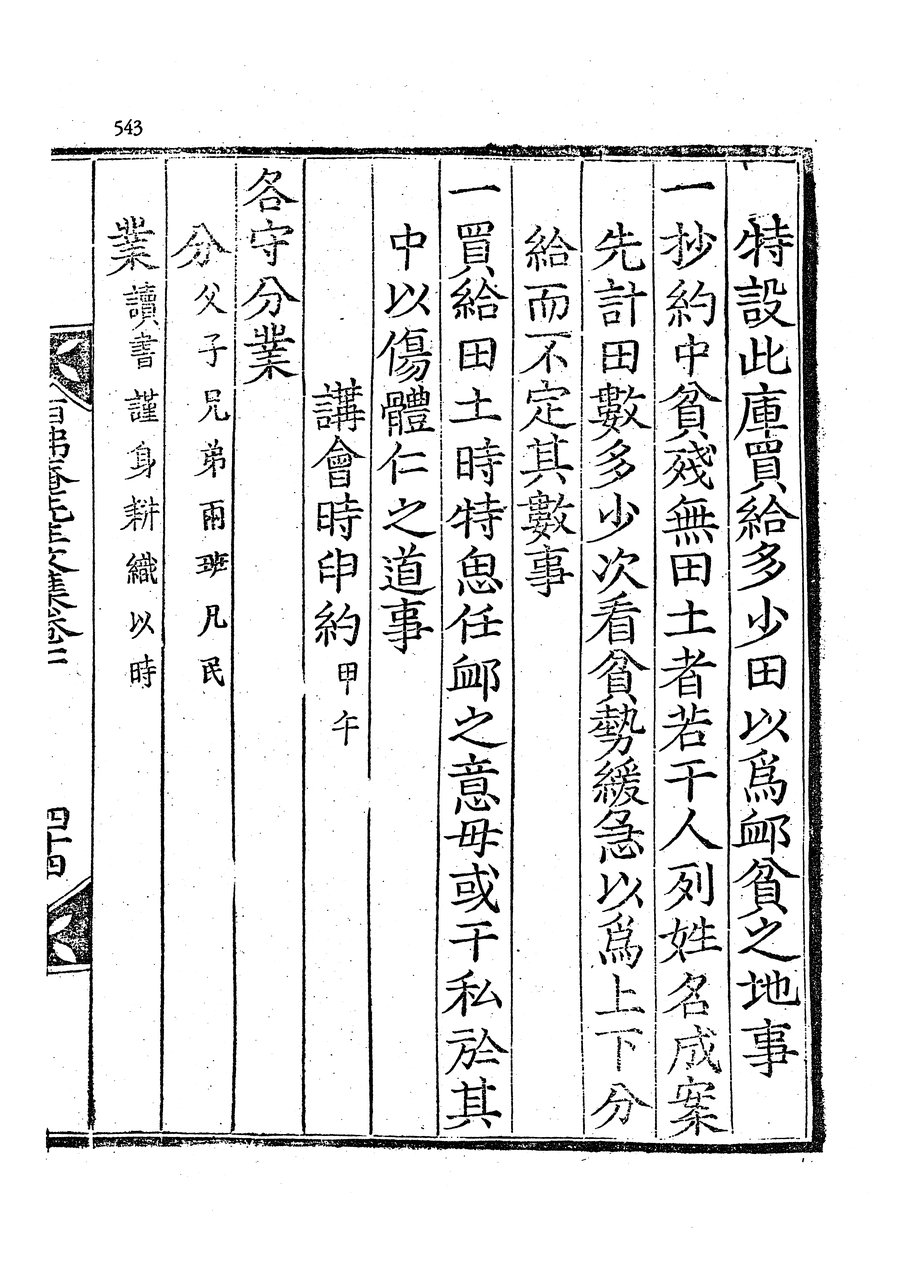 543
特設此庫買給多少田以爲卹貧之地事
一抄約中貧殘無田土者若干人列姓名成案
先計田數多少次看貧勢緩急以爲上下分
給而不定其數事
一買給田土時特思任卹之意毋或干私於其
中以傷體仁之道事
講會時申約甲午
各守分業
分父子兄弟兩班凡民
業讀書謹身耕織以時
先生文集卷二
四十四